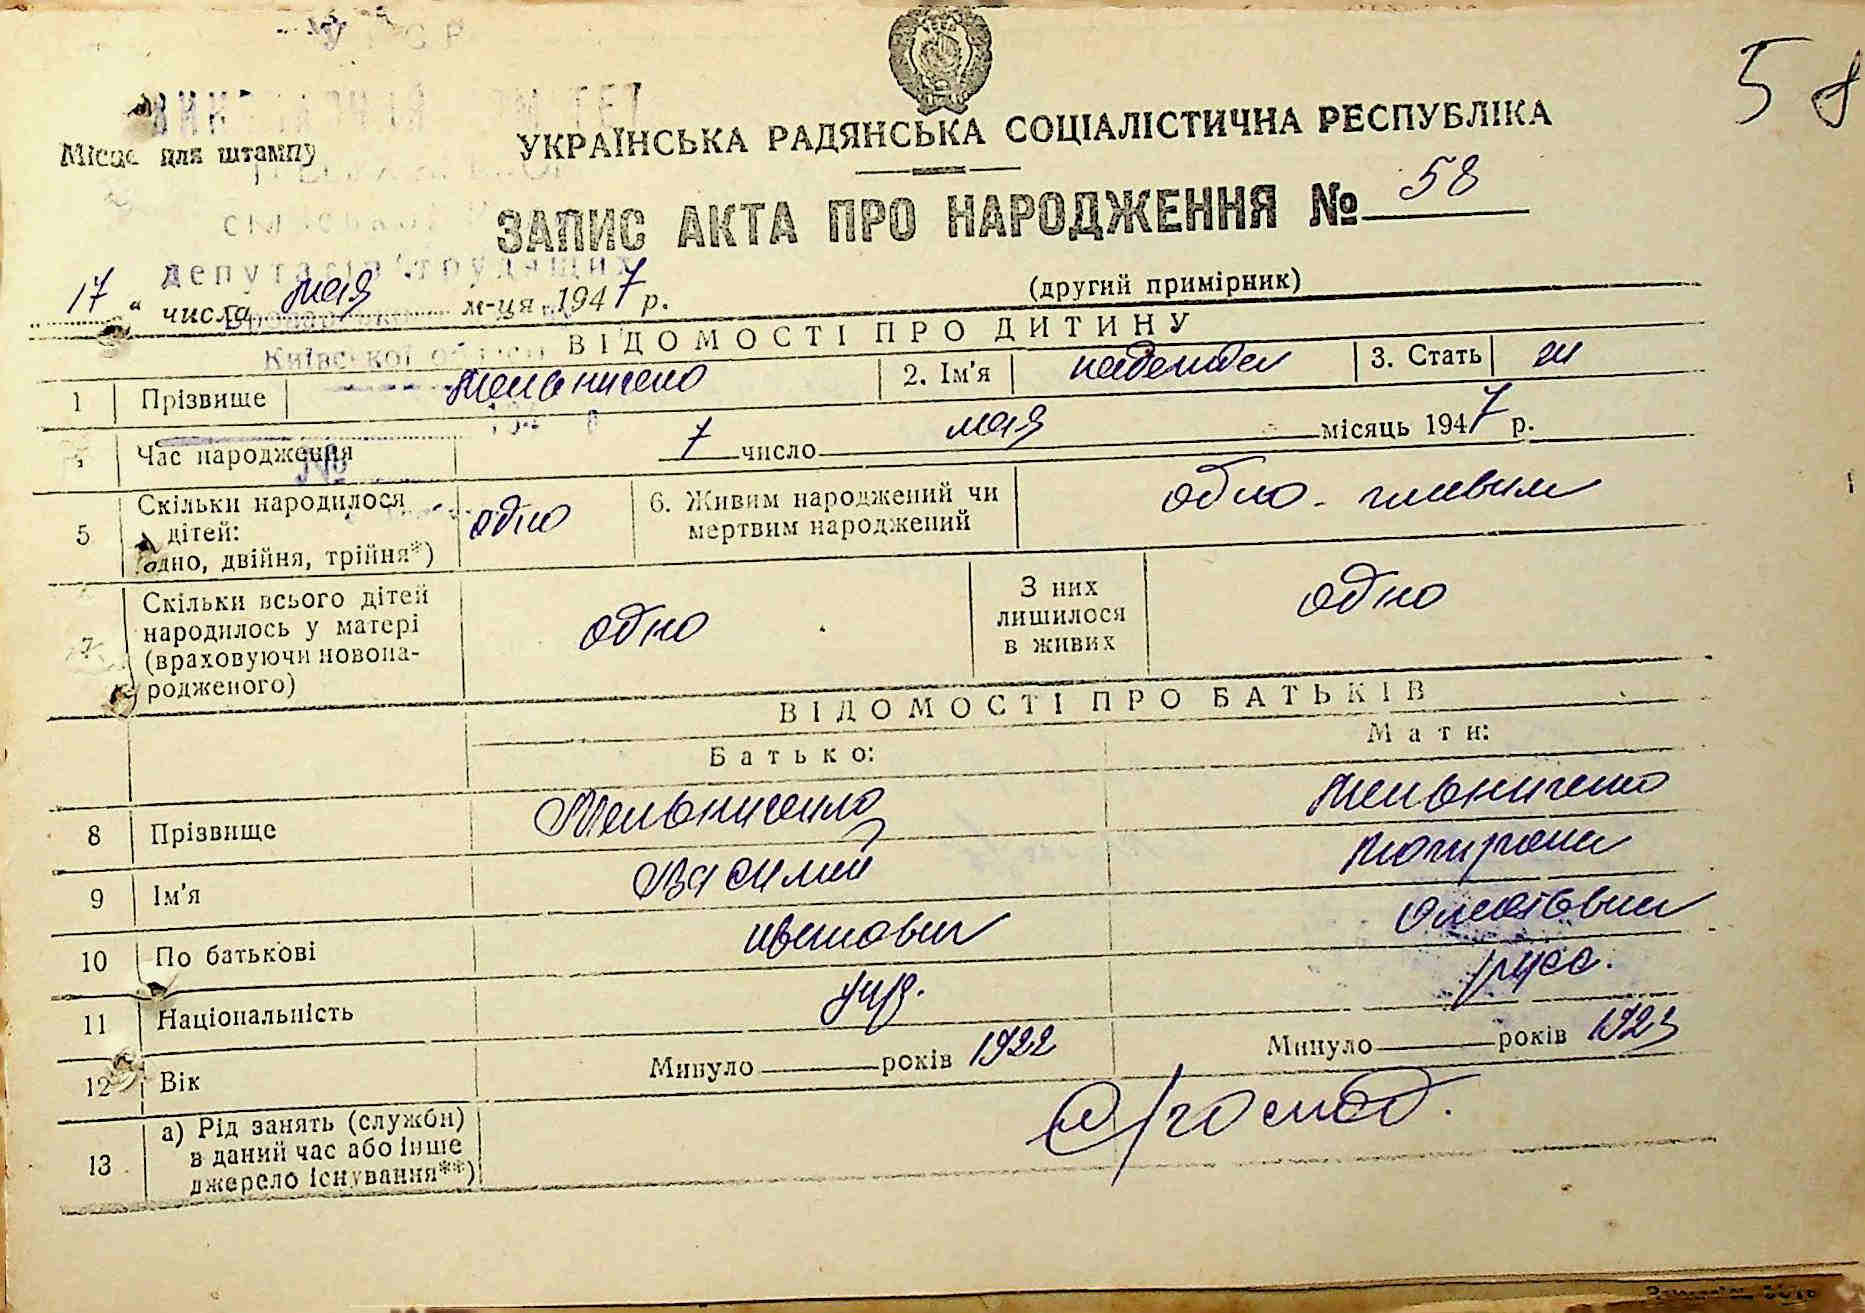 58
Місце для штампу
УКРАЇНСЬКА РАДЯНСЬКА СОЦІАЛІСТИЧНА РЕСПУБЛІКА
ЗАПИС АКТА ПРО НАРОДЖЕННЯ № 58
депутатів трудящих
(другий примірник)
17 " числа мая м-ця 1947 р.
Київської області
ВІДОМОСТІ ПРО ДИТИНУ
1 Прізвище Мельниченко 2. Ім'я надежда 3. Стать ж
Час народження 7 число мая місяць 1947 р.
5 Скільки народилося
дітей:
одно, двійня, трійня*) одно
6. Живим народжений чи
мертвим народжений одно - живым
7 Скільки всього дітей
народилось у матері
(враховуючи новона-
родженого) одно
З них
лишилося
в живих одно
ВІДОМОСТІ ПРО БАТЬКІВ
Батько: Мати:
8 Прізвище Мельниченко Мельниченко
9 Ім'я Василий
10 По батькові иванович
11 Національність укр. русс.
12 Вік Минуло років 1922 Минуло років 1923
13 а) Рід занять (служби)
в даний час або інше
джерело існування**)